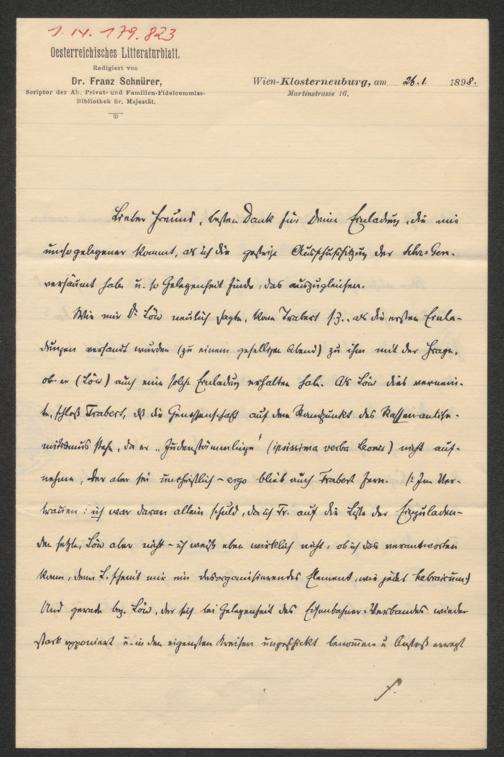 1.14.179.823
Oesterreichisches Litteraturblatt.
Redigiert von
Dr. Franz Schnürer,
Scriptor der Ah. Privat- und Familien-Fideicommiss-
Bibliothek Sr. Majestät.
Wien-Klosterneuburg, am 26.1. 1898.
Martinstrasse 16.
Lieber Freund, besten Dank für Deine Einladung, die mir
umso gelegener kommt, als ich die gestrige Ausschußsitzung der
versäumt habe u. so Gelegenheit finde, das auszugleichen.
Wie mir Dr. Löw neulich sagte, kam Trabert s.Z., als die ersten Einla-
dungen versandt wurden (zu einem geselligen Abend) zu ihm mit der Frage,
ob er (Löw) auch eine solche Einladung erhalten habe. Als Löw dies vernein-
te, schloß Trabert, daß die Genossenschaft auf dem Standpunkt des Rassenantise-
mitismus stehe, da er "Judenstämmlinge" (ipsissima verba) nicht auf-
nehme, der aber sei unchristlich – ergo blieb auch Trabert fern. (: Im Ver-
trauen: ich war daran allein schuld, da ich Tr. auf die Liste der Einzuladen-
den setzte, Löw aber nicht – ich weiß eben wirklich nicht, ob ich das verantworten
kann, denn L. scheint mir ein desorganisierendes Element, wie jedes
Und gerade bzg. Löw, der sich bei Gelegenheit des Eisenbahner-Verbandes wieder
stark opponiert u. in den eigensten Kreisen ungeschickt benommen u. Anstoß erregt